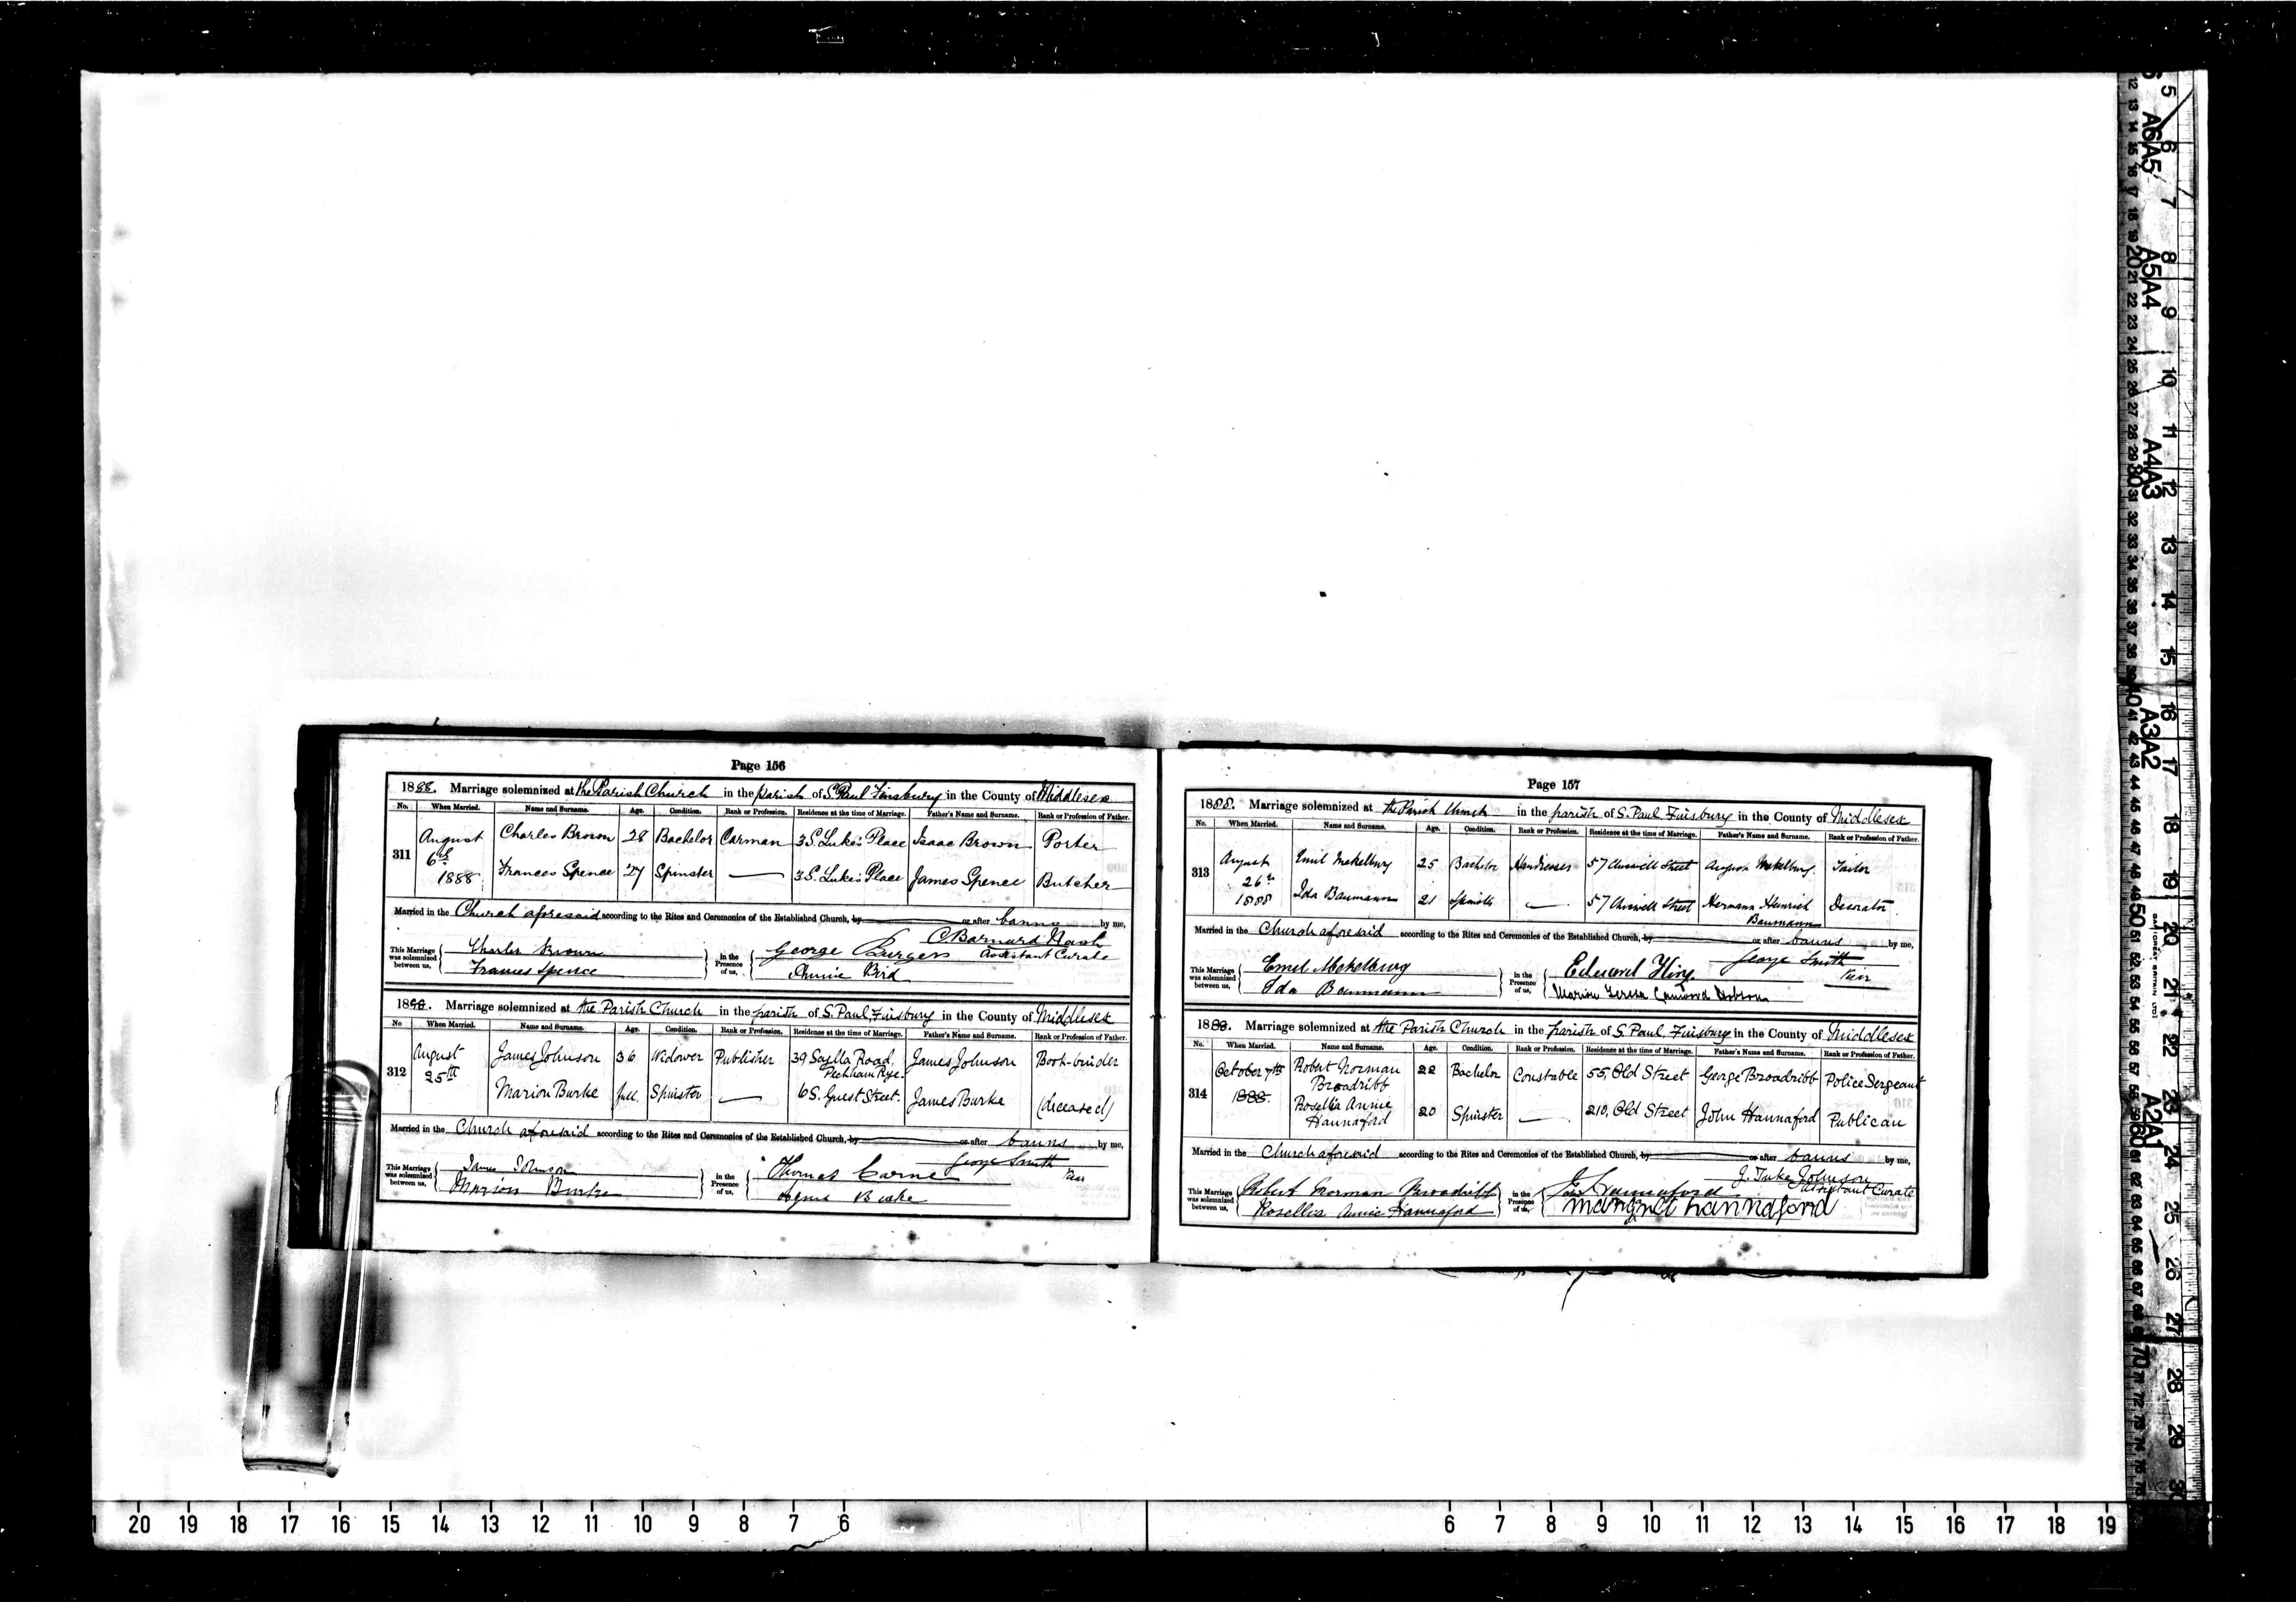 Page 156
1888. Marriage solemnized at the Parish Church in the parish of S. Paul Finsbury in the County of Middlesex
No. When Married. Name and Surname. Age. Condition. Rank or Profession. Residence at the time of Marriage. Father's Name and Surname. Rank or Profession of Father.
311 August 6th 1888 Charles Brown 28 Bachelor Carman 3 S. Luke's Place Isaac Brown Porter
Frances Spence 27 Spinster — 3 S. Luke's Place James Spence Butcher
Married in the Church aforesaid according to the Rites and Ceremonies of the Established Church, by or after banns by me,
C. Barnard Nash
Assistant Curate
This Marriage was solemnized between us, Charles Brown Frances Spence in the Presence of us, George Burgess Annie Bird
1888. Marriage solemnized at the Parish Church in the parish of S. Paul Finsbury in the County of Middlesex
No When Married. Name and Surname. Age. Condition. Rank or Profession. Residence at the time of Marriage. Father's Name and Surname. Rank or Profession of Father.
312 August 25th James Johnson 36 Widower Publisher 39 Road, Peckham Rye. James Johnson Book-binder
Marion Burke full Spinster — Guest Street. James Burke (deceased)
Married in the Church aforesaid according to the Rites and Ceremonies of the Established Church, by or after banns by me,
George Smith
This Marriage was solemnized between us, James Johnson Marion Burke in the Presence of us, Thomas Carne Agnes Burke
Page 157
1888. Marriage solemnized at the Parish Church in the parish of S. Paul Finsbury in the County of Middlesex
No. When Married. Name and Surname. Age. Condition. Rank or Profession. Residence at the time of Marriage. Father's Name and Surname. Rank or Profession of Father.
313 August 26th 1888 Emil Mekelburg 25 Bachelor 57 Chiswell Street Mekelburg. Tailor
Ida Baumann 21 Spinster — 57 Chiswell Street Hermann Heinrich Baumann Decorator
Married in the Church aforesaid according to the Rites and Ceremonies of the Established Church, by or after banns by me,
George Smith
This Marriage was solemnized between us, Emil Mekelburg Ida Baumann in the Presence of us, Edward
1888. Marriage solemnized at the Parish Church in the parish of S. Paul Finsbury in the County of Middlesex
No. When Married. Name and Surname. Age. Condition. Rank or Profession. Residence at the time of Marriage. Father's Name and Surname. Rank or Profession of Father.
314 October 7th 1888. Robert Norman Broadribb 22 Bachelor Constable 55, Old Street George Broadribb Police Sergeant
Rosellia Annie Hannaford 20 Spinster — 210, Old Street John Hannaford Publican
Married in the Church aforesaid according to the Rites and Ceremonies of the Established Church, by or after banns by me,
J. Tuke Johnson
Assistant Curate
This Marriage was solemnized between us, Robert Norman Broadribb Rosellia Annie Hannaford in the Presence of us, J. Hannaford Margret hannaford
20 19 18 17 16 15 14 13 12 11 10 9 8 7 6
6 7 8 9 10 11 12 13 14 15 16 17 18 19